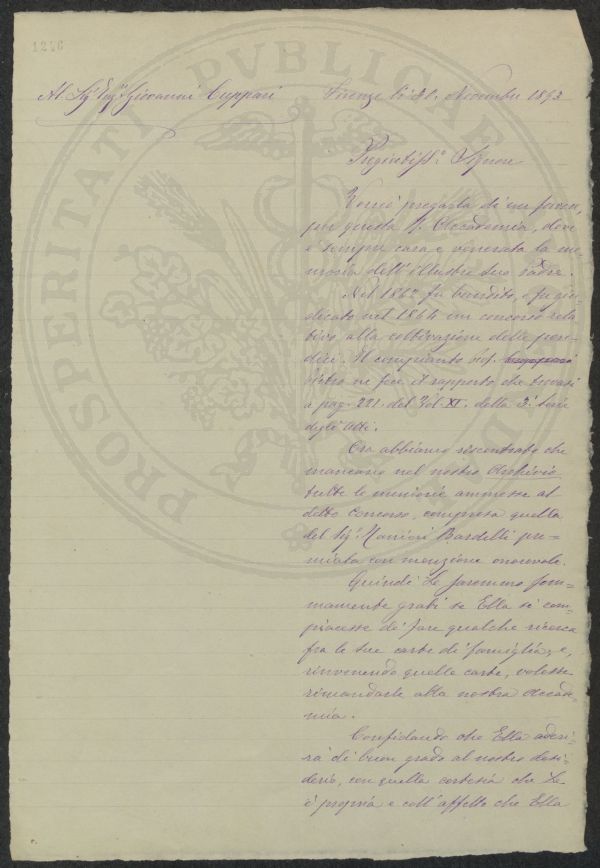 1276
PROSPERITATI PVBLICAE
Al Sig. Ing. Giovanni Cuppari
Firenze li 21. Novembre 1893
Pregiatiss. Signore
Vorrei pregarla di un favore,
per questa R. Accademia, dove
è sempre cara e venerata la me-
moria dell'illustre Suo Padre.
Nel 1862 fu bandito, e fu giu-
dicato nel 1864 un concorso rela
tivo alla coltivazione delle pen-
dici. Il compianto
Pietro ne fece il rapporto che trovasi
a pag. 221. del Vol. XI. della 2.a Serie
degli Atti.
Ora abbiamo riscontrato che
mancano nel nostro Archivio
tutte le memorie ammesse al
detto concorso, compresa quella
del Sig. Bardelli pre-
miata con menzione onorevole.
Quindi Le saremmo som-
mamente grati se Ella si com-
piacesse di fare qualche ricerca
fra le sue carte di famiglia, e,
rinvenendo quelle carte, volesse
rimandarle alla nostra Accade-
mia.
Confidando che Ella aderi-
rà di buon grado al nostro desi-
derio, con quella cortesia che Le
è propria e coll'affetto che Ella